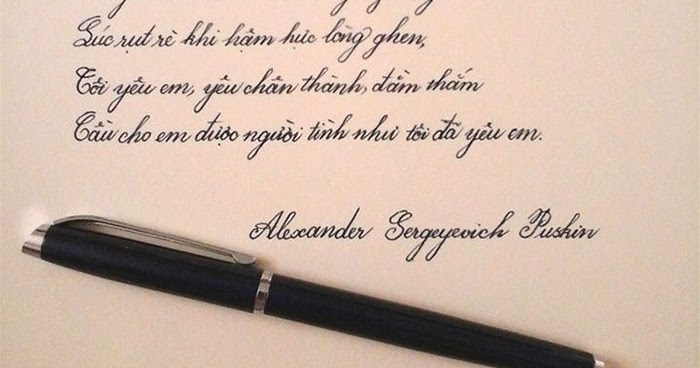 Lúc rụt rè khi hậm hực lòng ghen,
Tôi yêu em, yêu chân thành, đằm thắm
Cầu cho em được người tình như tôi đã yêu em.
Alexander Sergeyevich Puskin